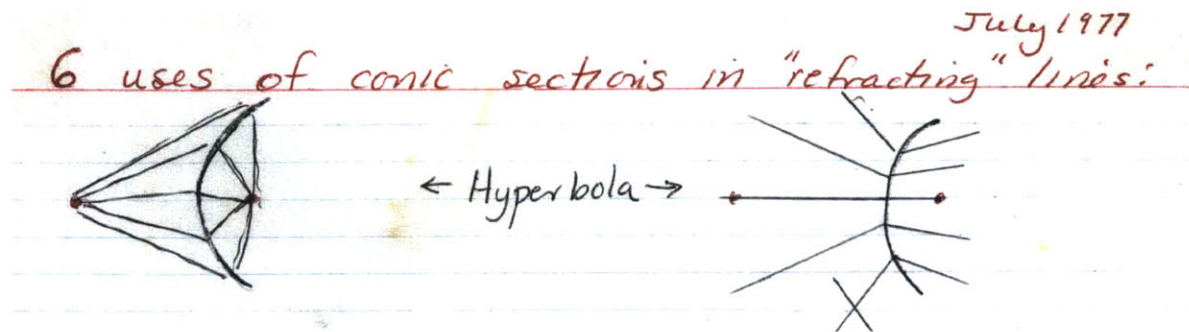 July 1977
6 uses of conic sections in "refracting" lines:
← Hyperbola →